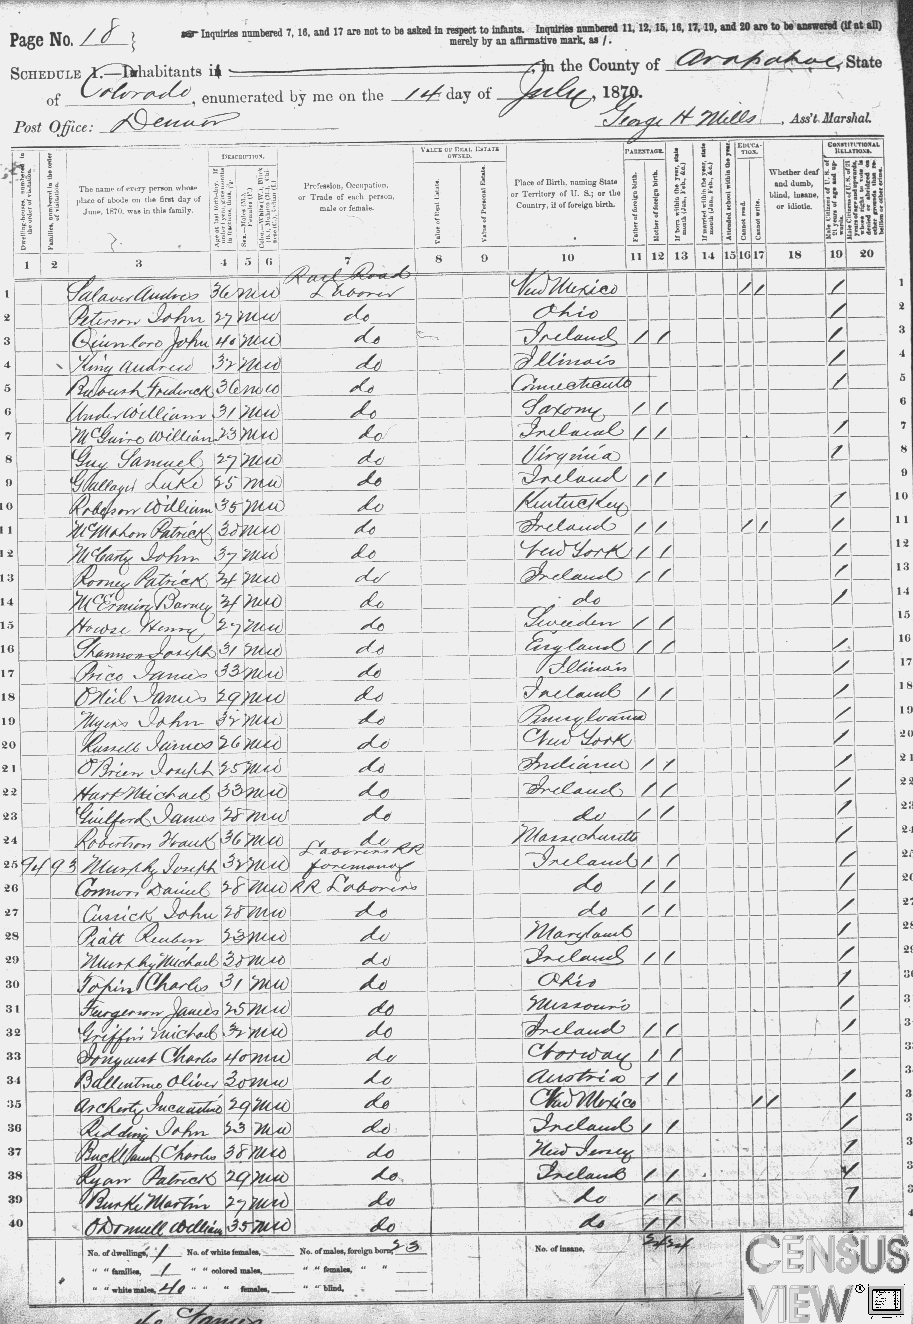 Page No. 18
Inquiries numbered 7, 16, and 17 are not to be asked in respect to infants. Inquiries numbered 11, 12, 15, 16, 17, 19, and 20 are to be answered (if at all)
merely by an affirmative mark, as /.
SCHEDULE 1.—Inhabitants in , in the County of Arapahoe, State
of Colorado, enumerated by me on the 14 day of July, 1870.
Post Office: Denver George H Mills, Ass't Marshal.
Dwelling-houses, numbered in the order of visitation.
Families, numbered in the order of visitation.
The name of every person whose place of abode on the first day of June, 1870, was in this family.
DESCRIPTION.
Profession, Occupation, or Trade of each person, male or female.
VALUE OF REAL ESTATE OWNED.
Value of Real Estate.
Value of Personal Estate.
Place of Birth, naming State or Territory of U. S.; or the Country, if of foreign birth.
PARENTAGE.
Father of foreign birth.
Mother of foreign birth.
If born within the year, state month (Jan., Feb., &c.)
If married within the year, state month (Jan., Feb., &c.)
Attended school within the year.
EDUCATION.
Cannot read.
Cannot write.
Whether deaf and dumb, blind, insane, or idiotic.
CONSTITUTIONAL RELATIONS.
1 2 3 4 5 6 7 8 9 10 11 12 13 14 15 16 17 18 19 20
Rail Road
1 Salaver Andres 36 M W Laborer New Mexico / / / 1
2 Peterson John 27 M W do Ohio / 2
3 Quinloro John 40 M W do Ireland / / / 3
4 King Andrew 32 M W do Illinois / 4
5 Frederick 36 M W do Connecticut / 5
6 Under William 31 M W do Saxony / / 6
7 McGuire William 23 M W do Ireland / / / 7
8 Guy Samuel 27 M W do Virginia / 8
9 Luke 25 M W do Ireland / / 9
10 Robeson William 35 M W do Kentuckey / 10
11 McMahon Patrick 30 M W do Ireland / / / / / 11
12 McCarty John 37 M W do New York / / / 12
13 Rooney Patrick 24 M W do Ireland / / / 13
14 McErmiry Barney 21 M W do do / 14
15 Howse Henry 27 M W do Sweeden / / 15
16 Shannon Joseph 31 M W do England / / / 16
17 Price James 33 M W do Illinois / 17
18 ONeil James 29 M W do Ireland / / / 18
19 Myers John 32 M W do Pennsylvania / 19
20 Russell James 26 M W do New York / 20
21 OBrien Joseph 25 M W do Indiana / / / 21
22 Hart Michael 33 M W do Ireland / / / 22
23 Guilford James 28 M W do do / / / 23
24 Robertson Frank 36 M W do Massachusetts / 24
Laborers RR
25 94 93 Murphy Joseph 32 M W foreman of Ireland / / / 25
26 Connors Daniel 28 M W RR Laborers do / / / 26
27 Cusick John 28 M W do do / / / 27
28 Piatt Reuben 23 M W do Maryland / 28
29 Murphy Michael 30 M W do Ireland / / / 29
30 Topin Charles 31 M W do Ohio /
31 Furgerson James 25 M W do Missouri /
32 Griffin Michael 32 M W do Ireland / / /
33 Charles 40 M W do Norway / /
34 Ballentine Oliver 30 M W do Austria / / /
35 29 M W do New Mexico / / /
36 Redding John 23 M W do Ireland / / /
37 Buckland Charles 38 M W do New Jersey /
38 Ryan Patrick 29 M W do Ireland / / /
39 Burke Martin 27 M W do do / / /
40 ODonnell William 35 M W do do / /
No. of dwellings, 1 No. of white females, No. of males, foreign born, 23 No. of insane, 24 24
" " families, 1 " " colored males, " " females, " "
" " white males, 40 " " females, " " blind,
CENSUS
VIEW®